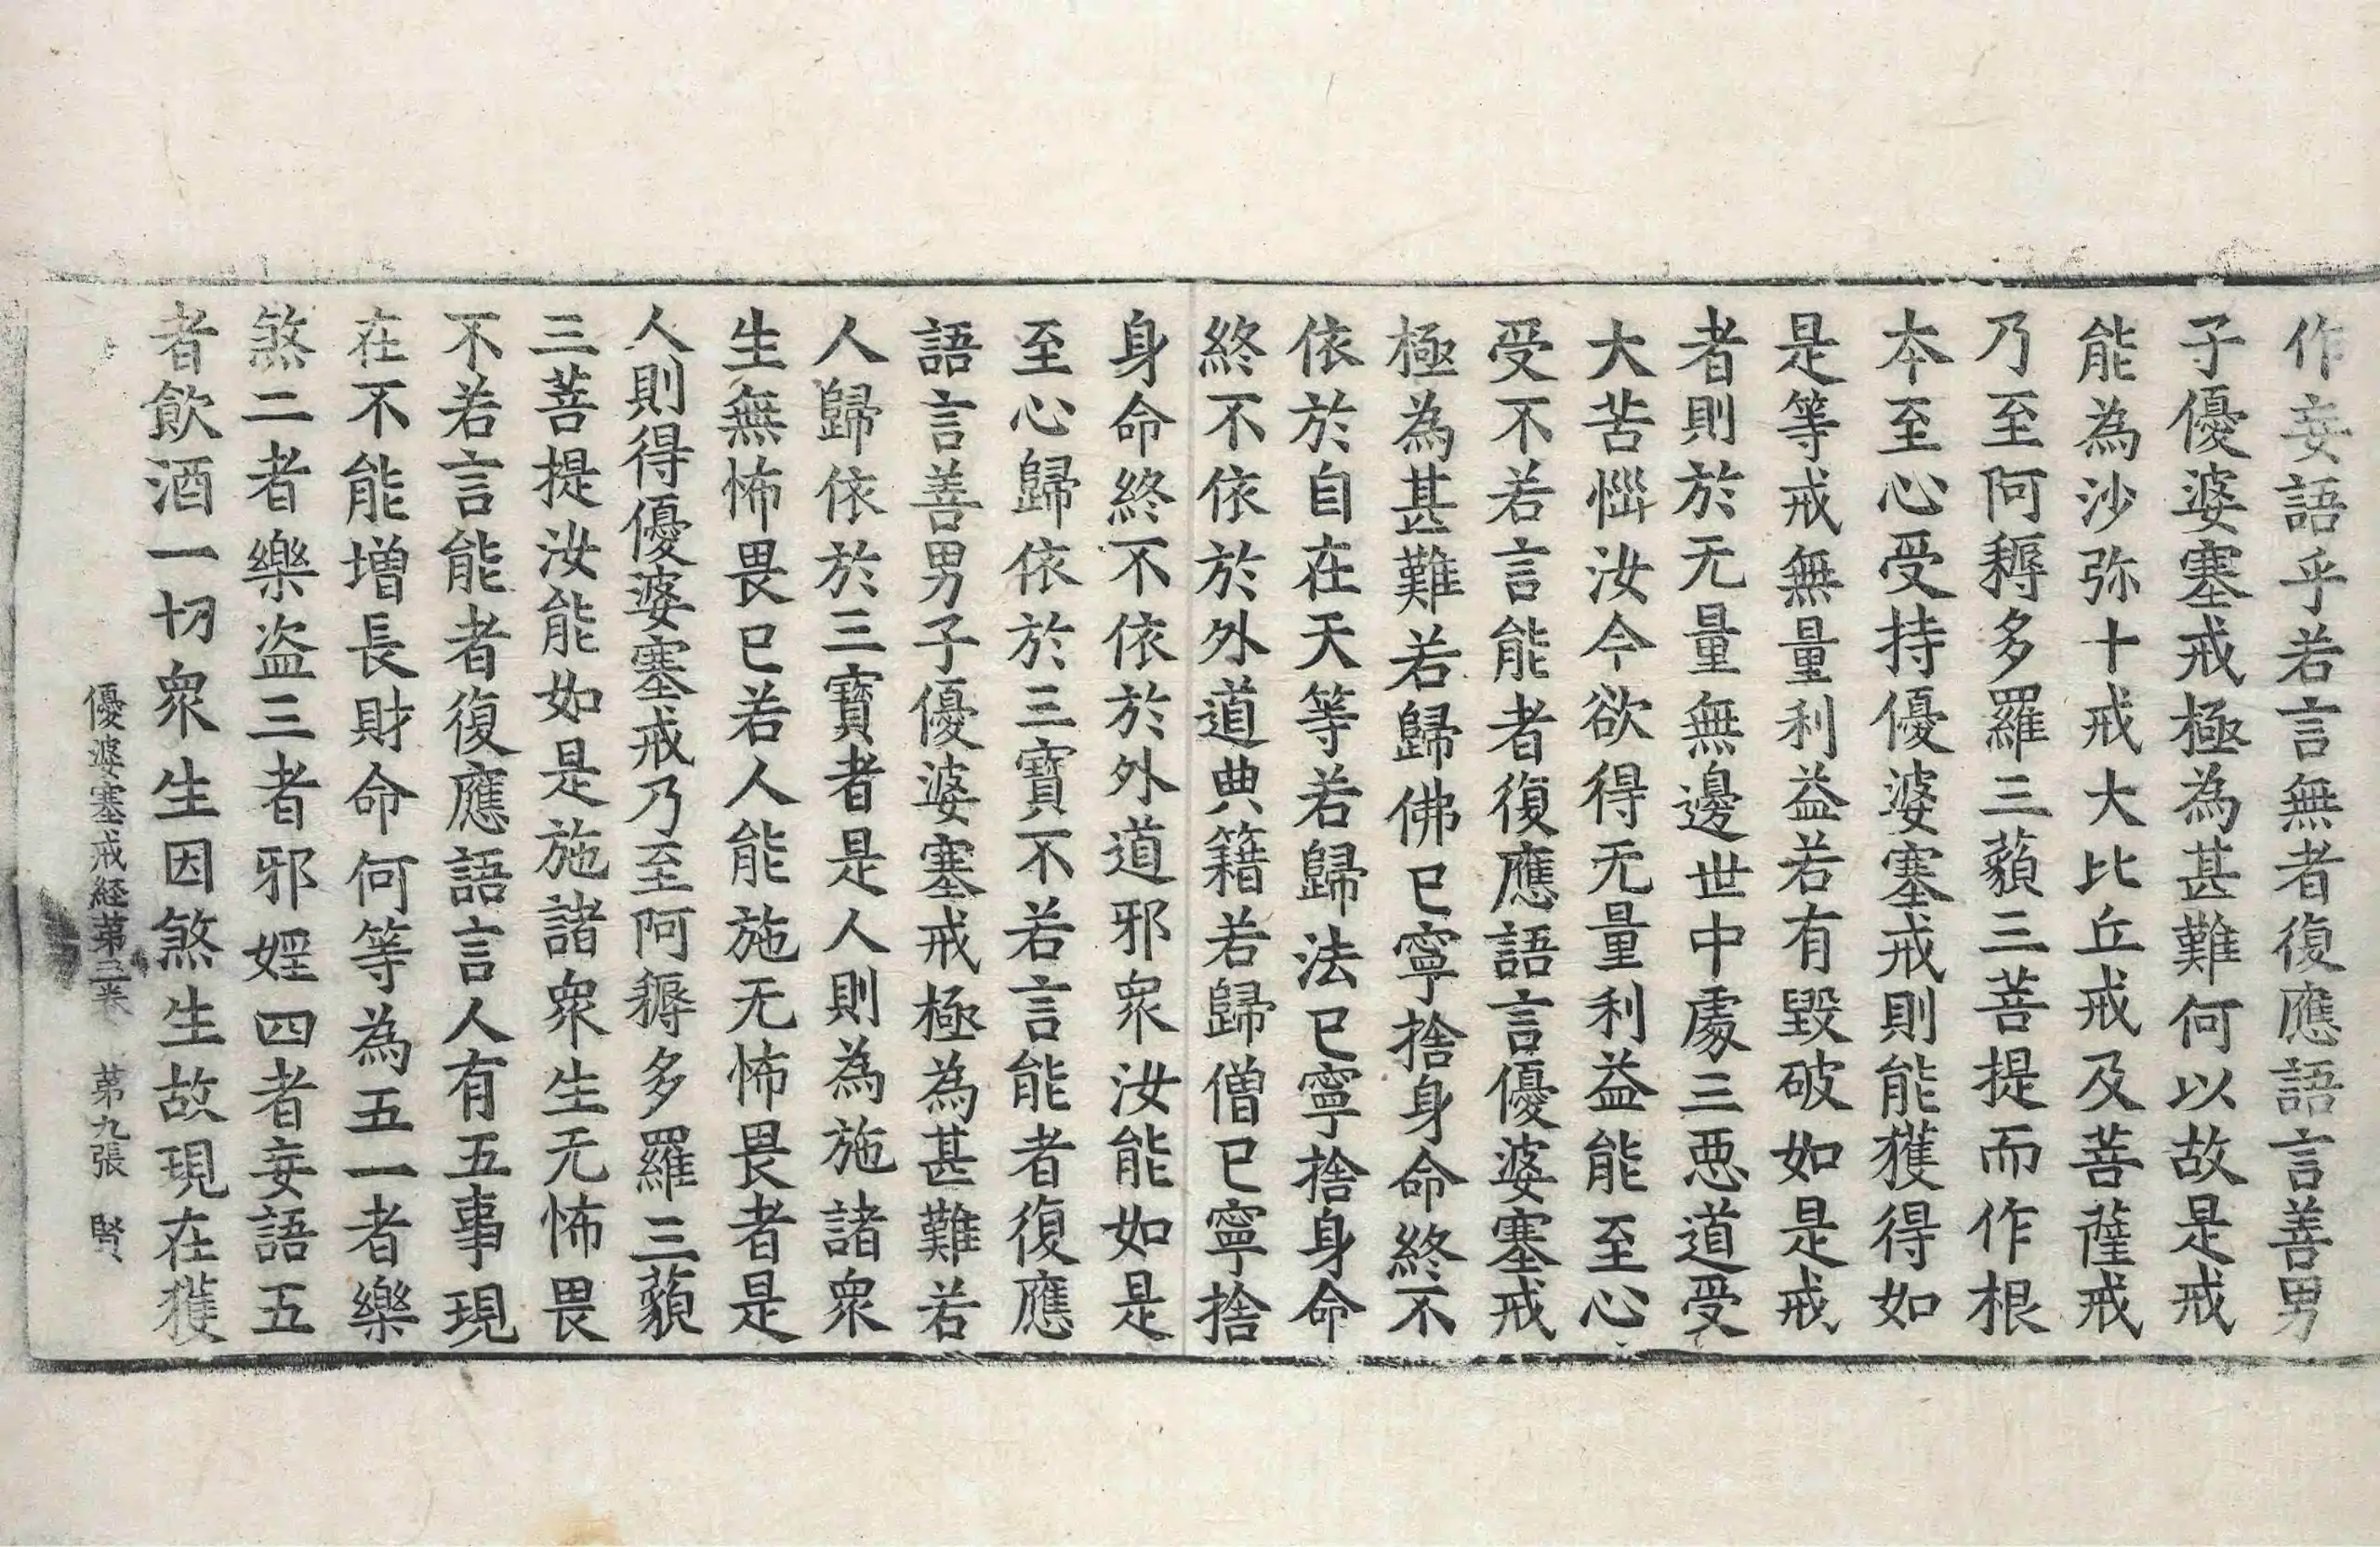 作妄語乎若言無者復應語言善男
子優婆塞戒極為甚難何以故是戒
能為沙弥十戒大比丘戒及菩薩戒
乃至阿耨多羅三藐三菩提而作根
本至心受持優婆塞戒則能獲得如
是等戒無量利益若有毀破如是戒
者則於无量無邊世中處三惡道受
大苦惱汝今欲得无量利益能至心
受不若言能者復應語言優婆塞戒
極為甚難若歸佛已寧捨身命終不
依於自在天等若歸法已寧捨身命
終不依於外道典籍若歸僧已寧捨
身命終不依於外道邪衆汝能如是
至心歸依於三寶不若言能者復應
語言善男子優婆塞戒極為甚難若
人歸依於三寶者是人則為施諸衆
生無怖畏已若人能施无怖畏者是
人則得優婆塞戒乃至阿耨多羅三藐
三菩提汝能如是施諸衆生无怖畏
不若言能者復應語言人有五事現
在不能增長財命何等為五一者樂
煞二者樂盗三者邪婬四者妄語五
者飲酒一切衆生因煞生故現在獲
優婆塞戒経苐三卷 苐九張 賢